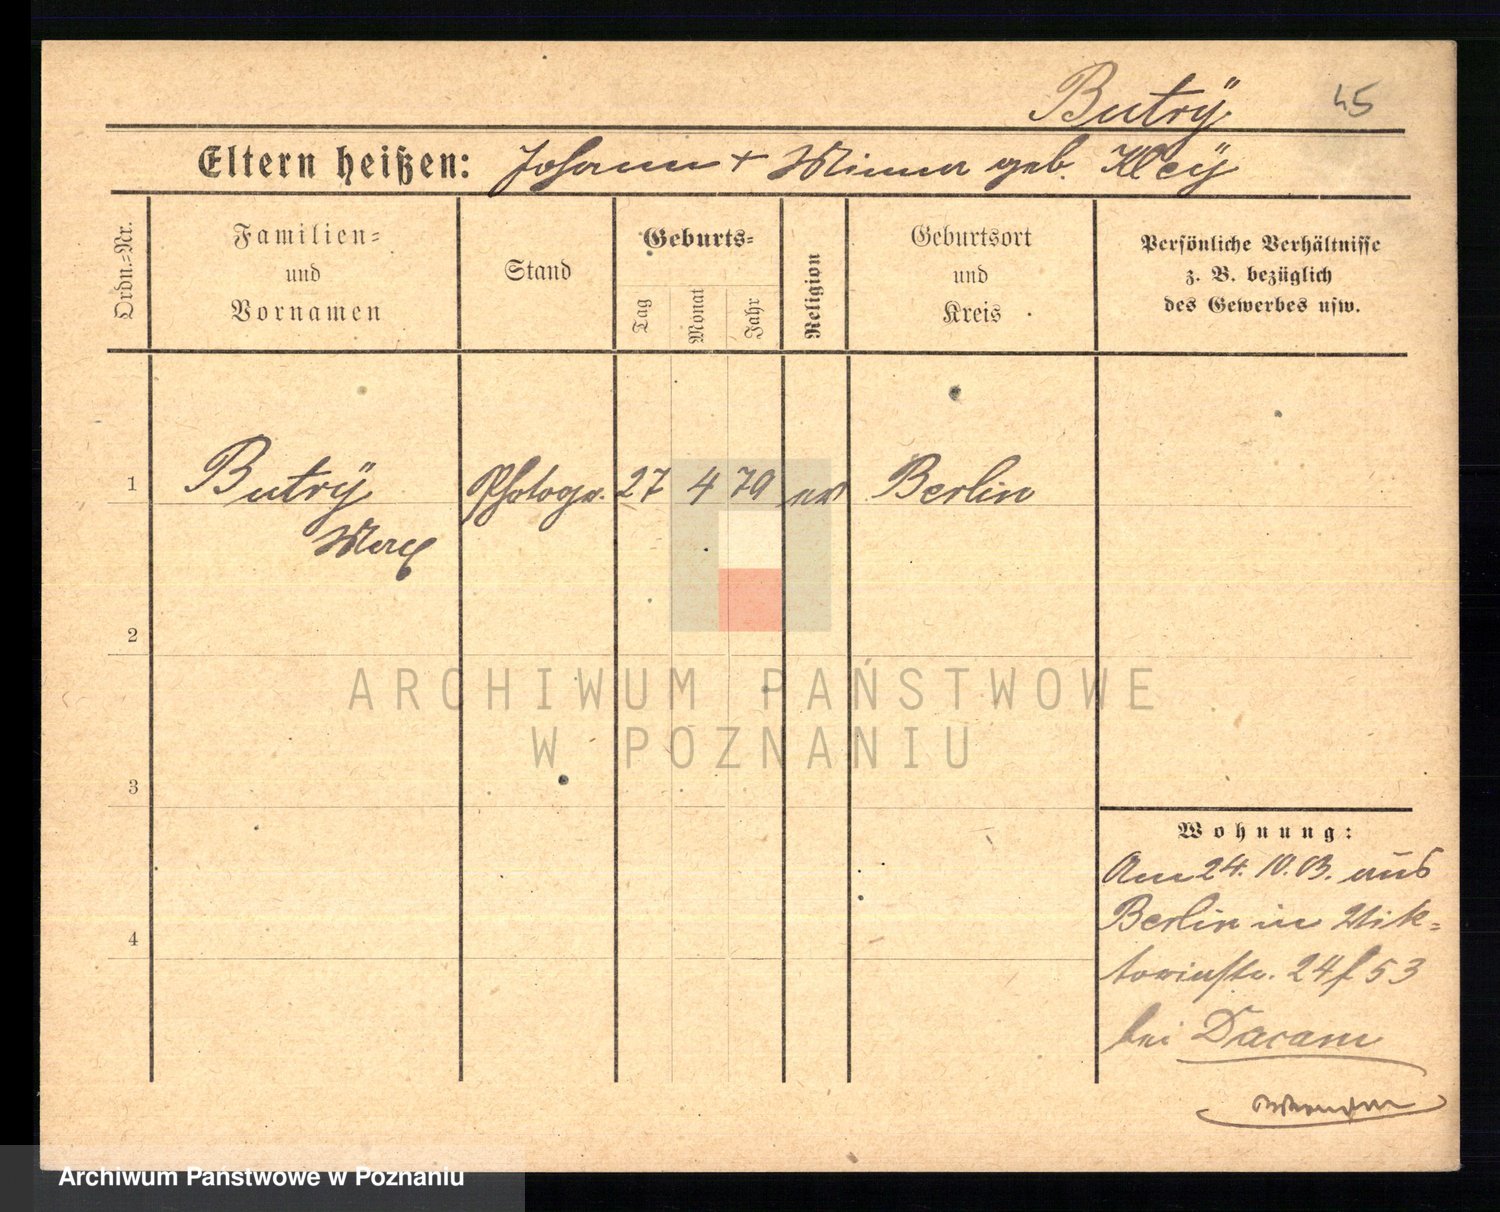 Butrÿ 45
Eltern heißen: Johann + Minna geb. Kleÿ
Ordn.=Nr.
Familien=
und
Vornamen
Stand
Geburts=
Tag
Monat
Jahr
Religion
Geburtsort
und
Kreis
Persönliche Verhältnisse
z. B. bezüglich
des Gewerbes usw.
1 Butrÿ Photogr. 27 4 79 ev Berlin
Max
2
ARCHIWUM PAŃSTWOWE
W POZNANIU
3
4
Wohnung:
Am 24. 10. 03. aus
Berlin in Vik=
toriastr. 24 f 53
bei Dacam
Archiwum Państwowe w Poznaniu